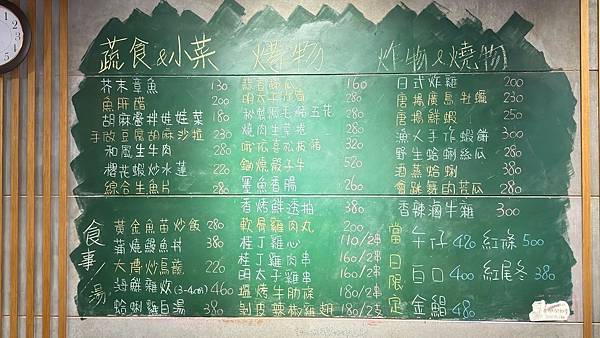 蔬食&小菜
芥末章魚 130
魚肝醋 200
胡麻醬拌娃娃菜 180
手做豆腐胡麻沙拉 230
和風生牛肉 280
櫻花蝦炒水蓮 220
綜合生魚片 280
烤物
160
明太子 280
280
燒肉生菜捲 280
320
鍋燒骰子牛 520
墨魚香腸 260
香烤鮮透抽 380
軟骨雞肉丸 200
桂丁雞心 110/2串
桂丁雞肉串 160/2串
明太子雞串 160/2串
鹽烤牛肋條 180/2串
剝皮辣椒雞翅 180/2支
炸物&燒物
日式炸雞 200
唐揚廣島牡蠣 250
唐揚鮮蝦 250
漁人手作蝦餅 300
野生蛤蜊絲瓜 280
酒蒸蛤蜊 380
會跳舞的苦瓜 280
香辣滷牛雜 300
食事/湯
黃金魚苗炒飯 280
蒲燒鰻魚丼 380
大博炒烏龍 220
海鮮雜炊(3-4人份) 460
蛤蜊雞白湯 380
當日限定
午仔 420 紅條 500
白口 400 紅尾冬 380
金鯧 480